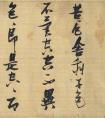 苦厄舍利子色
不異空空不異
色〻即是空〻即